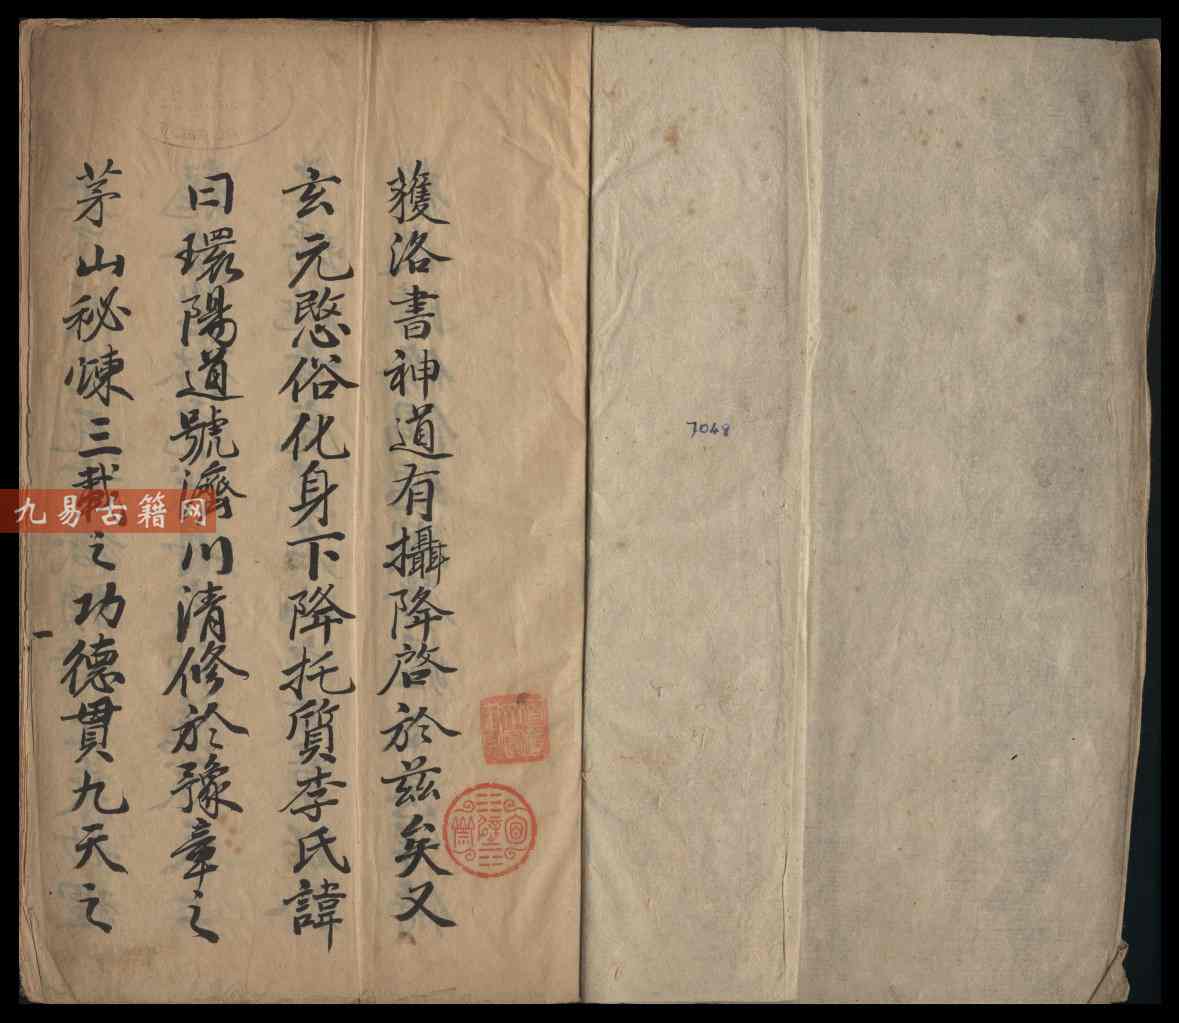 獲洛書神道有攝降啓於兹矣又
玄元愍俗化身下降托質李氏諱
曰環陽道號濟川清修於豫章之
茅山秘煉三載之功德貫九天之
7048
九易古籍网